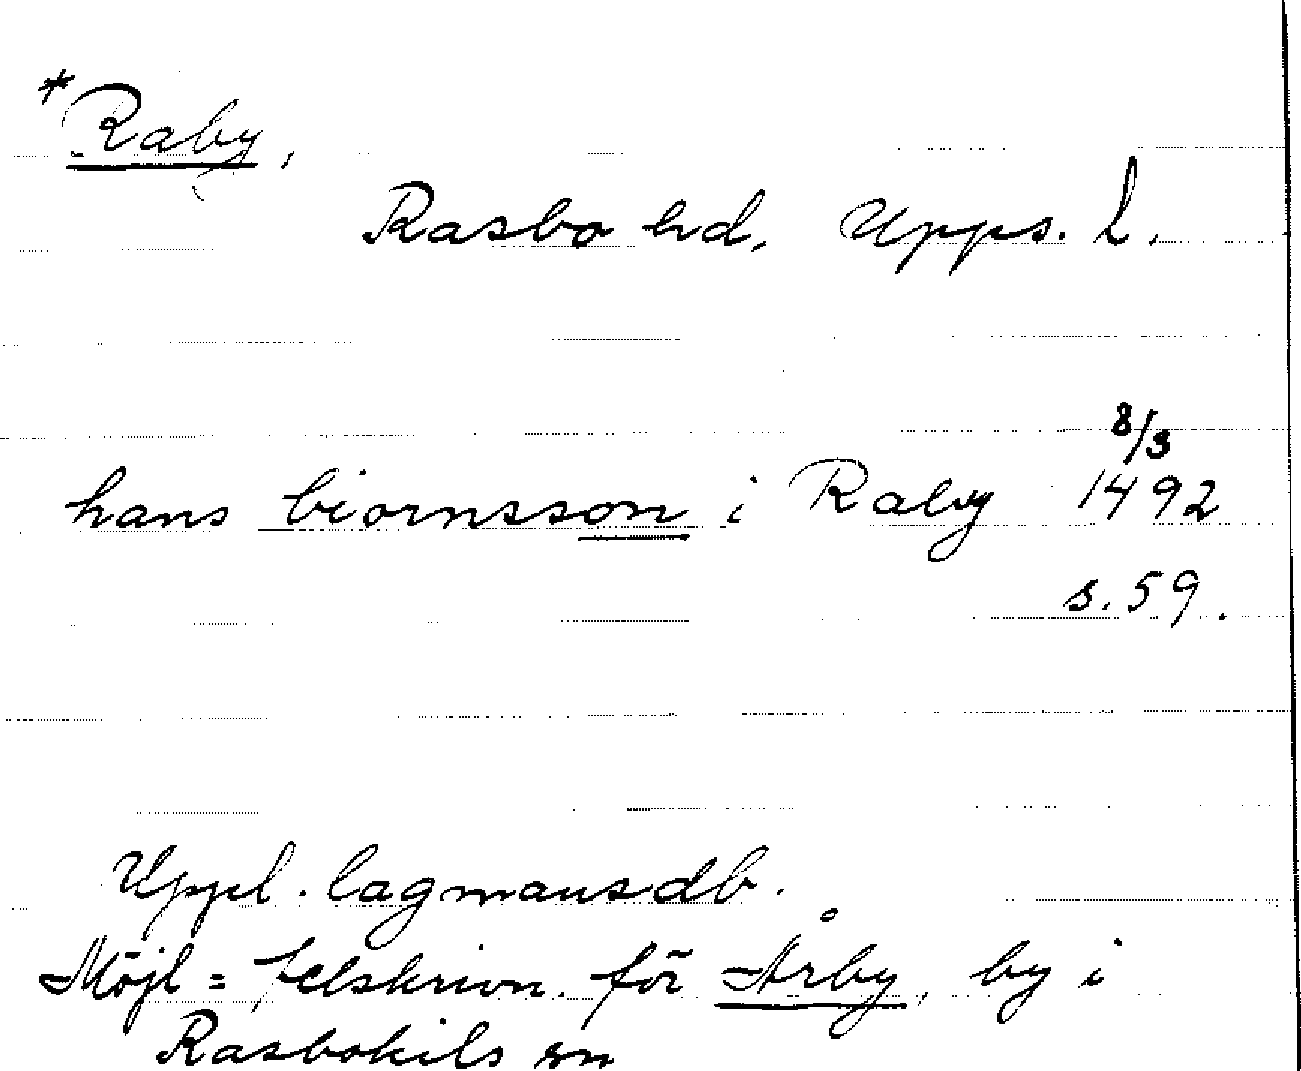 *Raby,
Rasbo hd, Upps. L.
8/3
hans biornsson i Raby 1492
s. 59.
Uppl. lagmansdb.
Möjl = felskrivn. för Årby, by i
Rasbokils sn